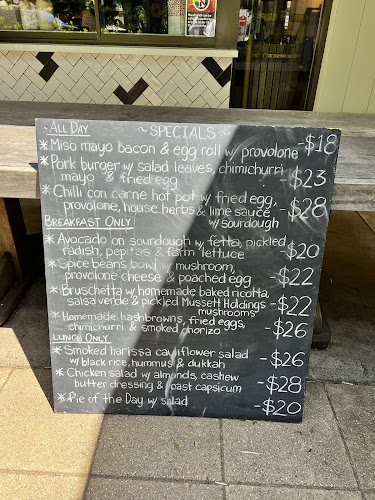 ~ALL DAY
~ SPECIALS ~
* Miso mayo bacon & egg roll w/ provolone -$18
* Pork burger w/ salad leaves, chimichurri
mayo & fried egg -$23
* Chilli con carne hot pot w/ fried egg,
provolone, house herbs & lime sauce -$28
w/ sourdough
BREAKFAST ONLY
* Avocado on sourdough w/ fetta, pickled
radish, pepitas & farm lettuce -$20
* Spice beans bowl w/ mushroom,
provolone cheese & poached egg -$22
* Bruschetta w/ homemade baked ricotta,
salsa verde & pickled Mussett Holdings -$22
mushrooms
* Homemade hashbrowns, fried eggs,
chimichurri & smoked chorizo -$26
LUNCH ONLY
* Smoked harissa cauliflower salad
w/ black rice, hummus & dukkah -$26
* Chicken salad w/ almonds, cashew
butter dressing & roast capsicum -$28
* Pie of the Day w/ salad -$20